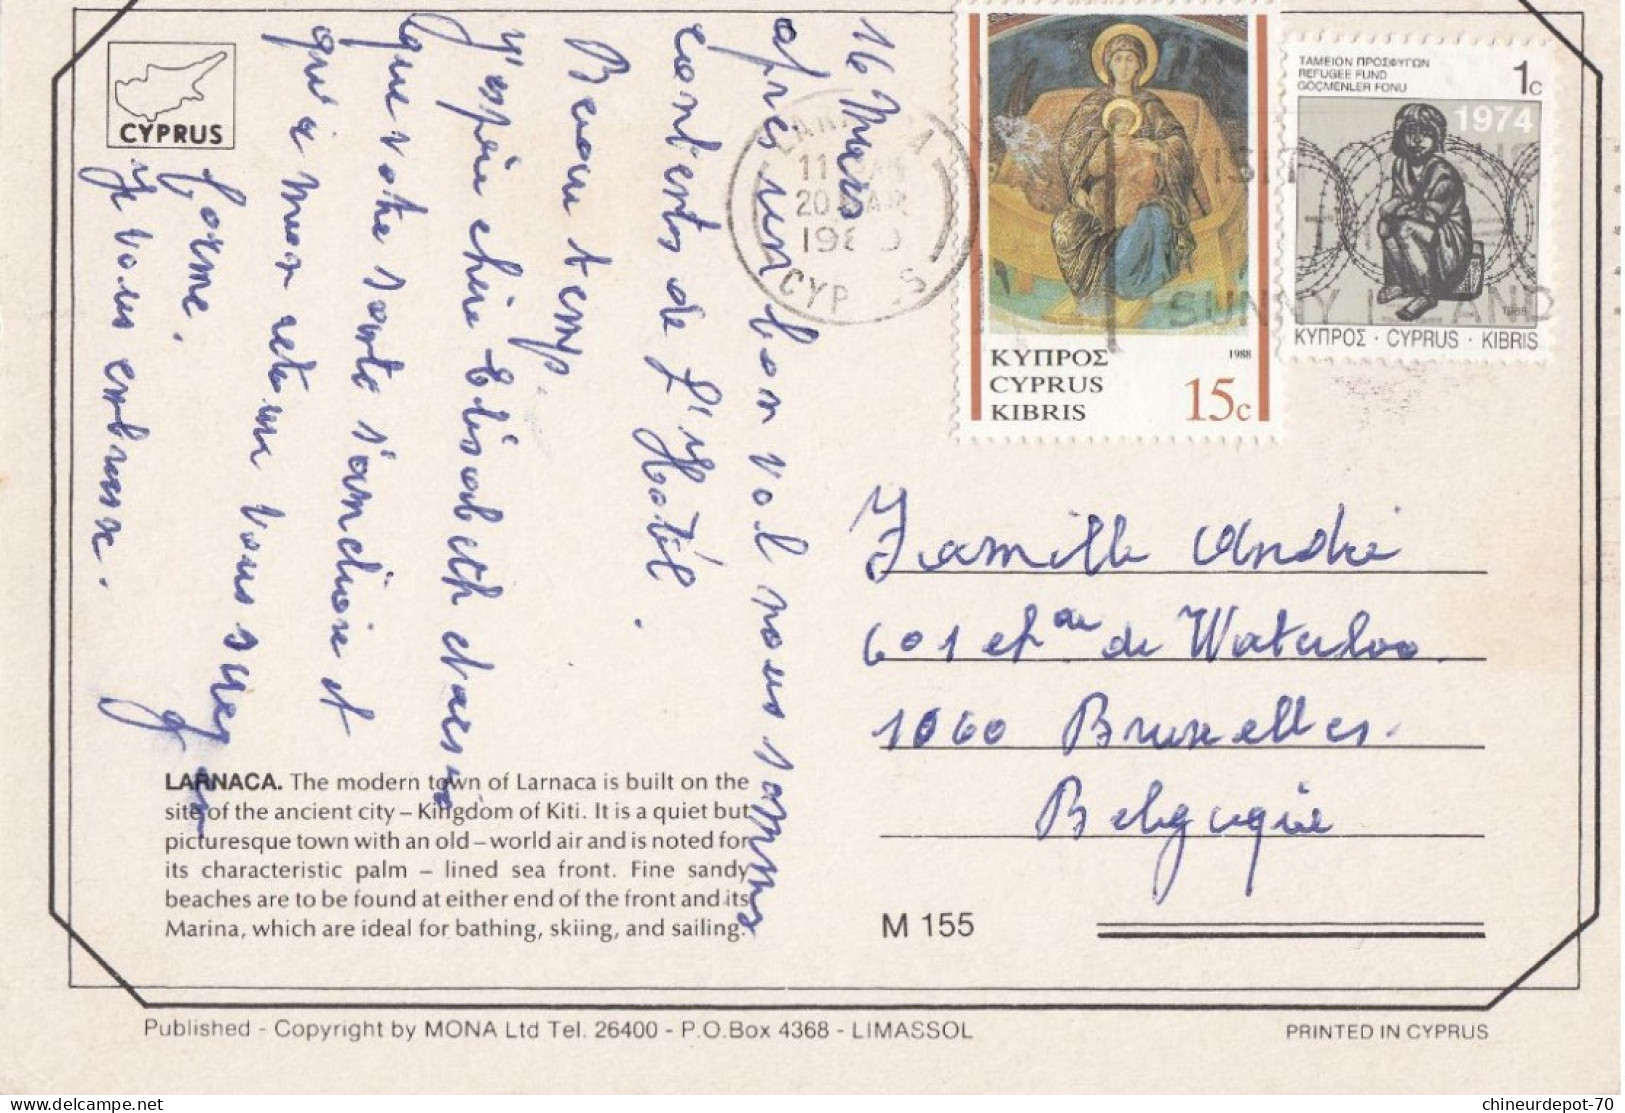 CYPRUS
16 Mars
après un bon vol nous sommes
contents de l'Hôtel.
Beau temps.
J'espère chère Elisabeth et
que votre santé s'améliore et
qu'à mon retour vous serez en
forme.
Je vous embrasse.
LARNACA. The modern town of Larnaca is built on the
site of the ancient city – Kingdom of Kiti. It is a quiet but
picturesque town with an old – world air and is noted for
its characteristic palm – lined sea front. Fine sandy
beaches are to be found at either end of the front and its
Marina, which are ideal for bathing, skiing, and sailing.
LARNACA
11
20 MAR
CYPRUS
SUNNY ISLAND
ΚΥΠΡΟΣ 1988
CYPRUS
KIBRIS 15c
ΤΑΜΕΙΟΝ ΠΡΟΣΦΥΓΩΝ
REFUGEE FUND
GÖÇMENLER FONU
1c
1974
1988
ΚΥΠΡΟΣ · CYPRUS · KIBRIS
Famille André
601 chée de Waterloo
1060 Bruxelles.
Belgique
M 155
Published - Copyright by MONA Ltd Tel. 26400 - P.O.Box 4368 - LIMASSOL
PRINTED IN CYPRUS
delcampe.net
chineurdepot-70